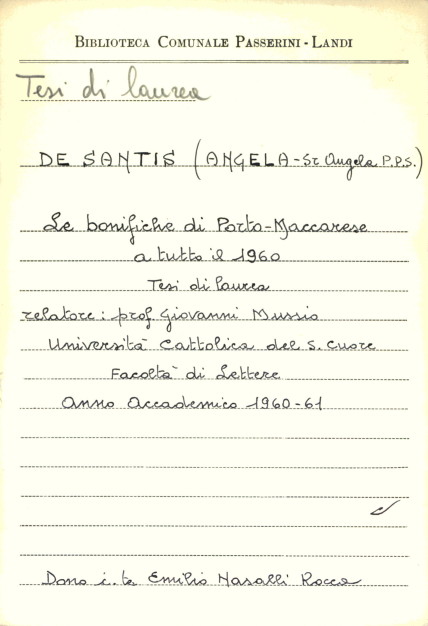 BIBLIOTECA COMUNALE PASSERINI - LANDI
Tesi di laurea
DE SANTIS (ANGELA - Sr Angela P.P.S.)
Le bonifiche di Porto-Maccarese
a tutto il 1960
Tesi di laurea
relatore: prof Giovanni Mussio
Università Cattolica del S. Cuore
Facoltà di Lettere
Anno Accademico 1960-61
Dono c.te Emilio Nasalli Rocca